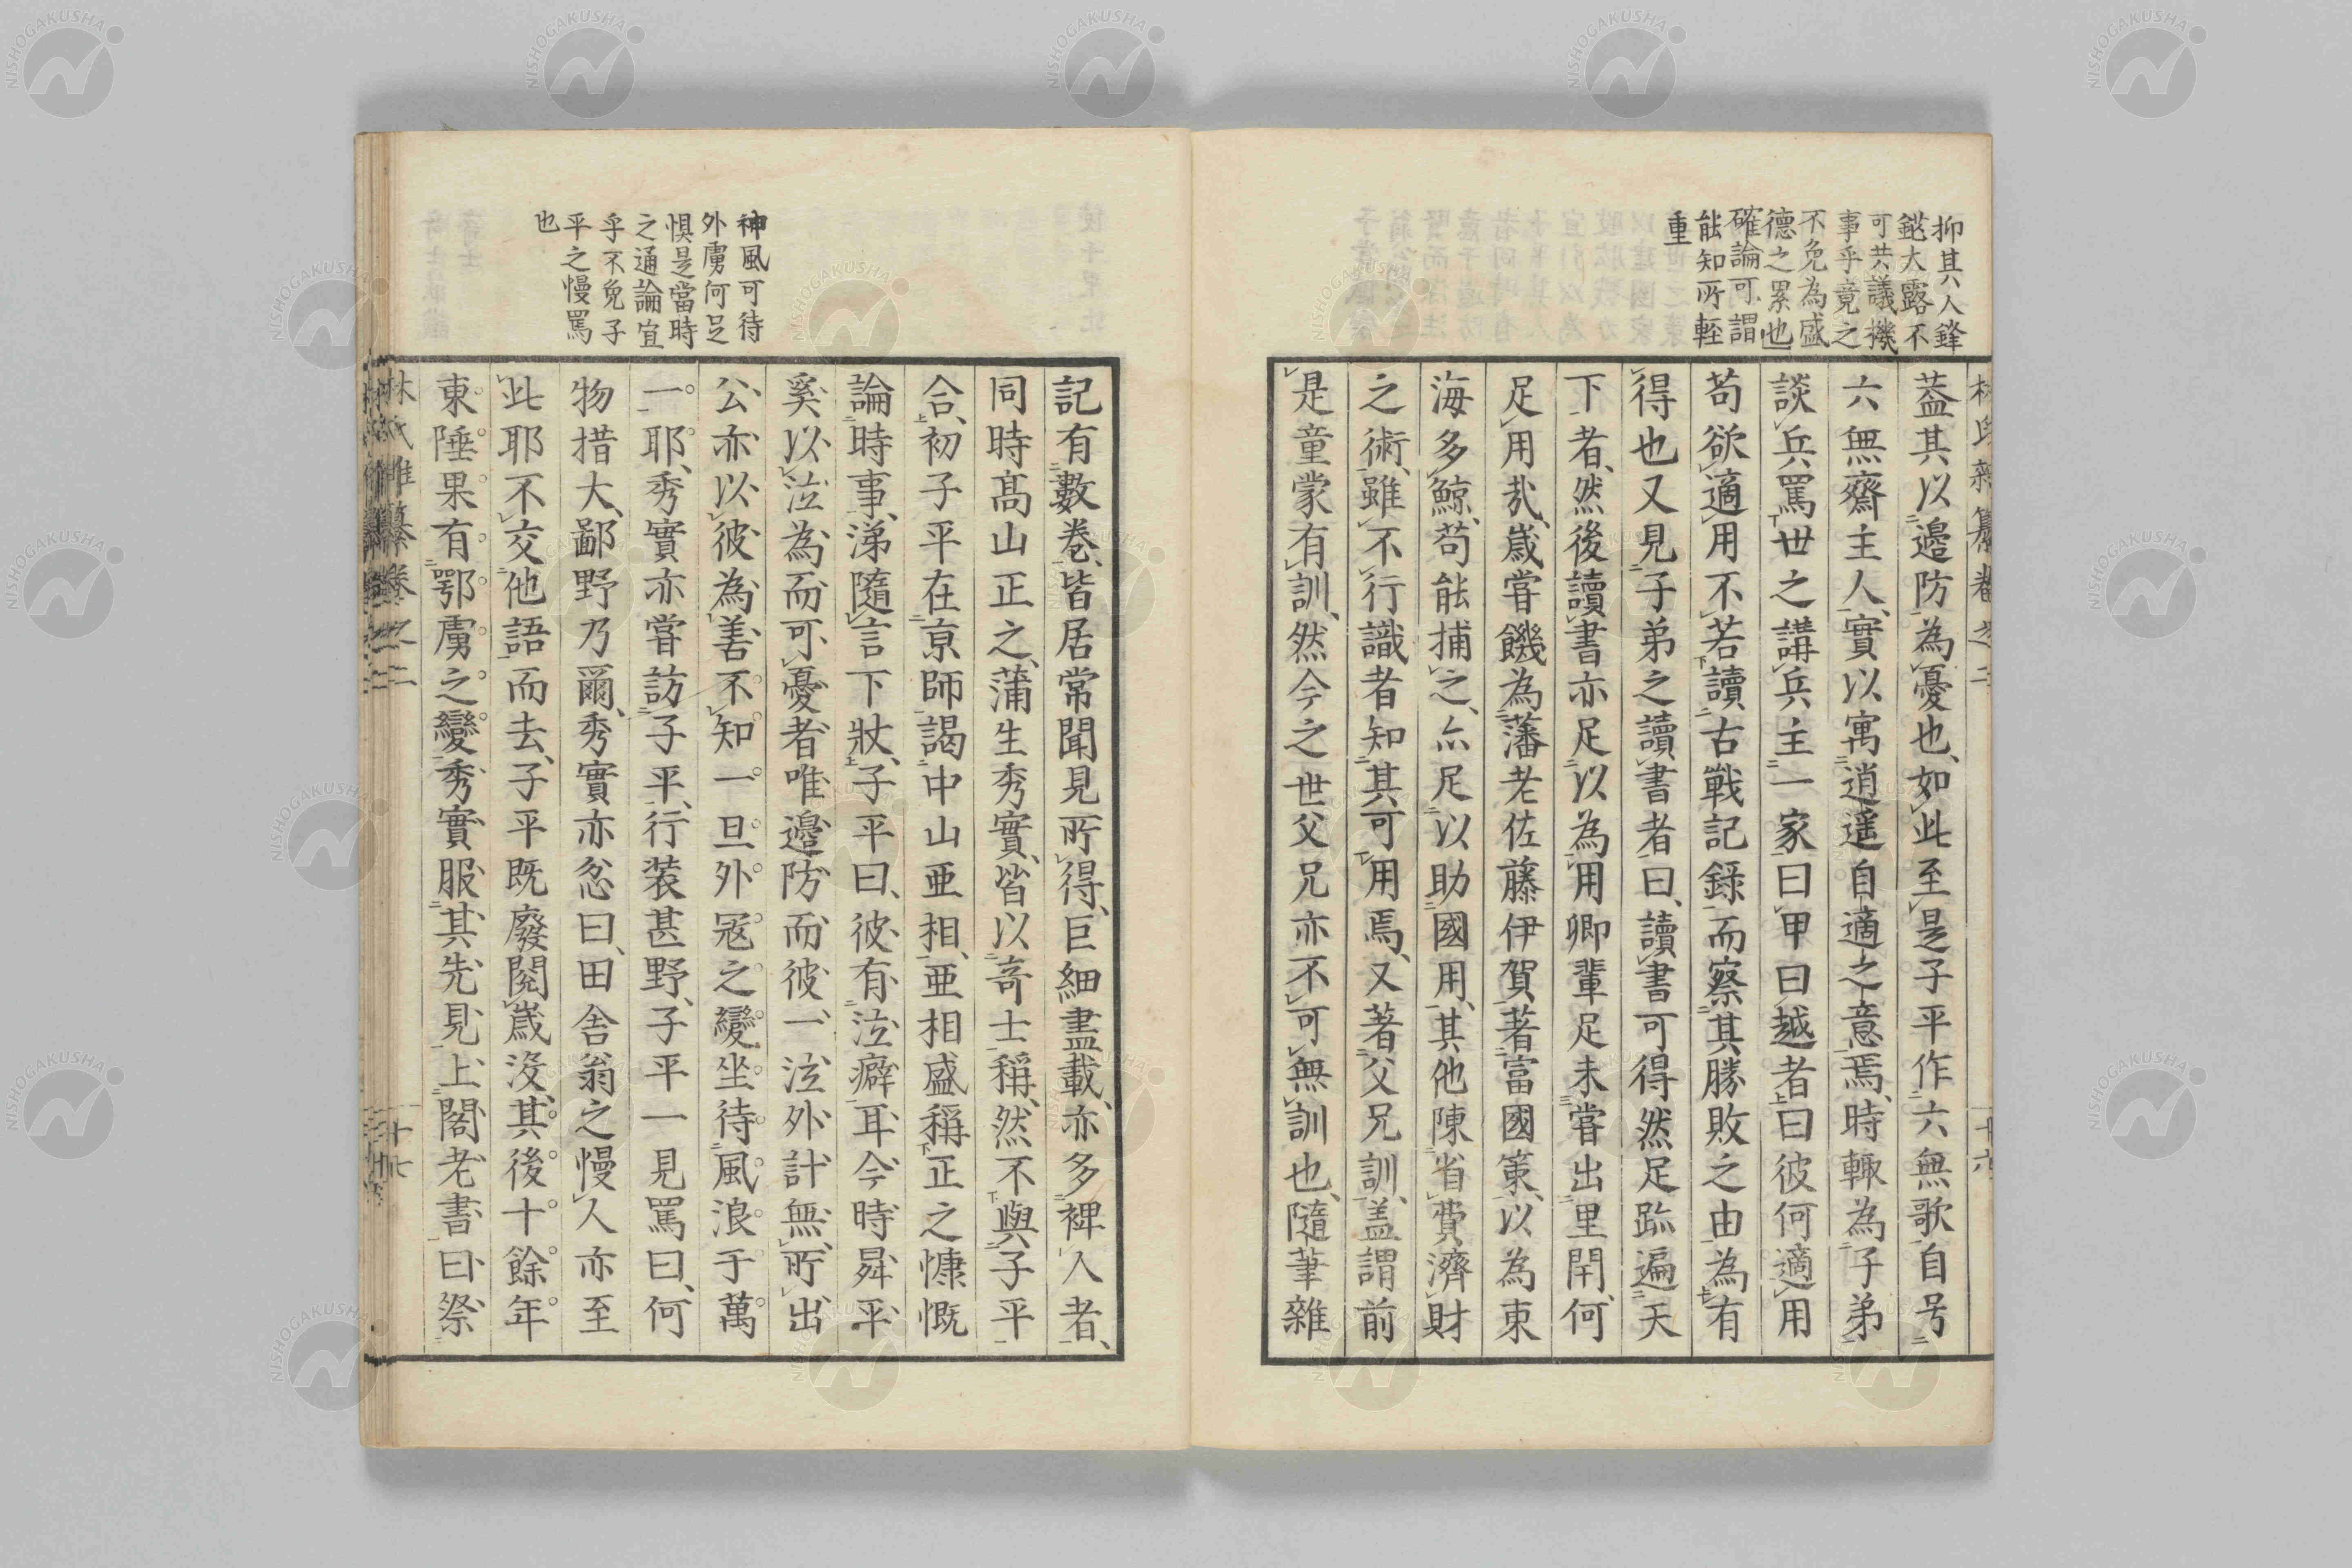 抑其人鋒
鋭大露不
可共議機
事乎竟之
不免為盛
德之累也
確論可謂
能知所輕
重
蓋其以邊防為憂也、如此至是子平作六無歌自号
六無齋主人、實以寓逍遥自適之意焉、時輙為子弟
談兵罵世之講兵主一家曰甲曰越者曰彼何適用
苟欲適用不若讀古戰記錄而察其勝敗之由為有
得也又見子弟之讀書者曰、讀書可得然足跡遍天
下者、然後讀書亦足以為用卿輩足未嘗出里閈、何
足用哉、歳嘗饑為藩老佐藤伊賀著富國策、以為東
海多鯨、苟能捕之、亦足以助國用、其他陳省費濟財
之術、雖不行識者知其可用焉、又著父兄訓、蓋謂前
是童蒙有訓、然今之世父兄亦不可無訓也、隨筆雜
神風可待
外虜何足
惧是當時
之通論宜
乎不免子
平之慢罵
也
記有數卷、皆居常聞見所得、巨細盡載、亦多裨人者、
同時高山正之、蒲生秀實、皆以奇士稱、然不與子平
合、初子平在京師謁中山亜相、亜相盛稱正之慷慨
論時事、涕隨言下狀、子平曰、彼有泣癖耳、今時昇平、
奚以泣為而可憂者唯邊防而彼一泣外計無所出
公亦以彼為善不知一旦外冦之變坐待風浪于萬
一耶、秀實亦嘗訪子平、行装甚野、子平一見罵曰、何
物措大、鄙野乃爾、秀實亦忿曰、田舎翁之慢人亦至
此耶不交他語而去、子平既廢閲歳没、其後十餘年
東陲果有鄂虜之變、秀實服其先見、上閣老書曰、祭
林氏雜纂卷之二
十七